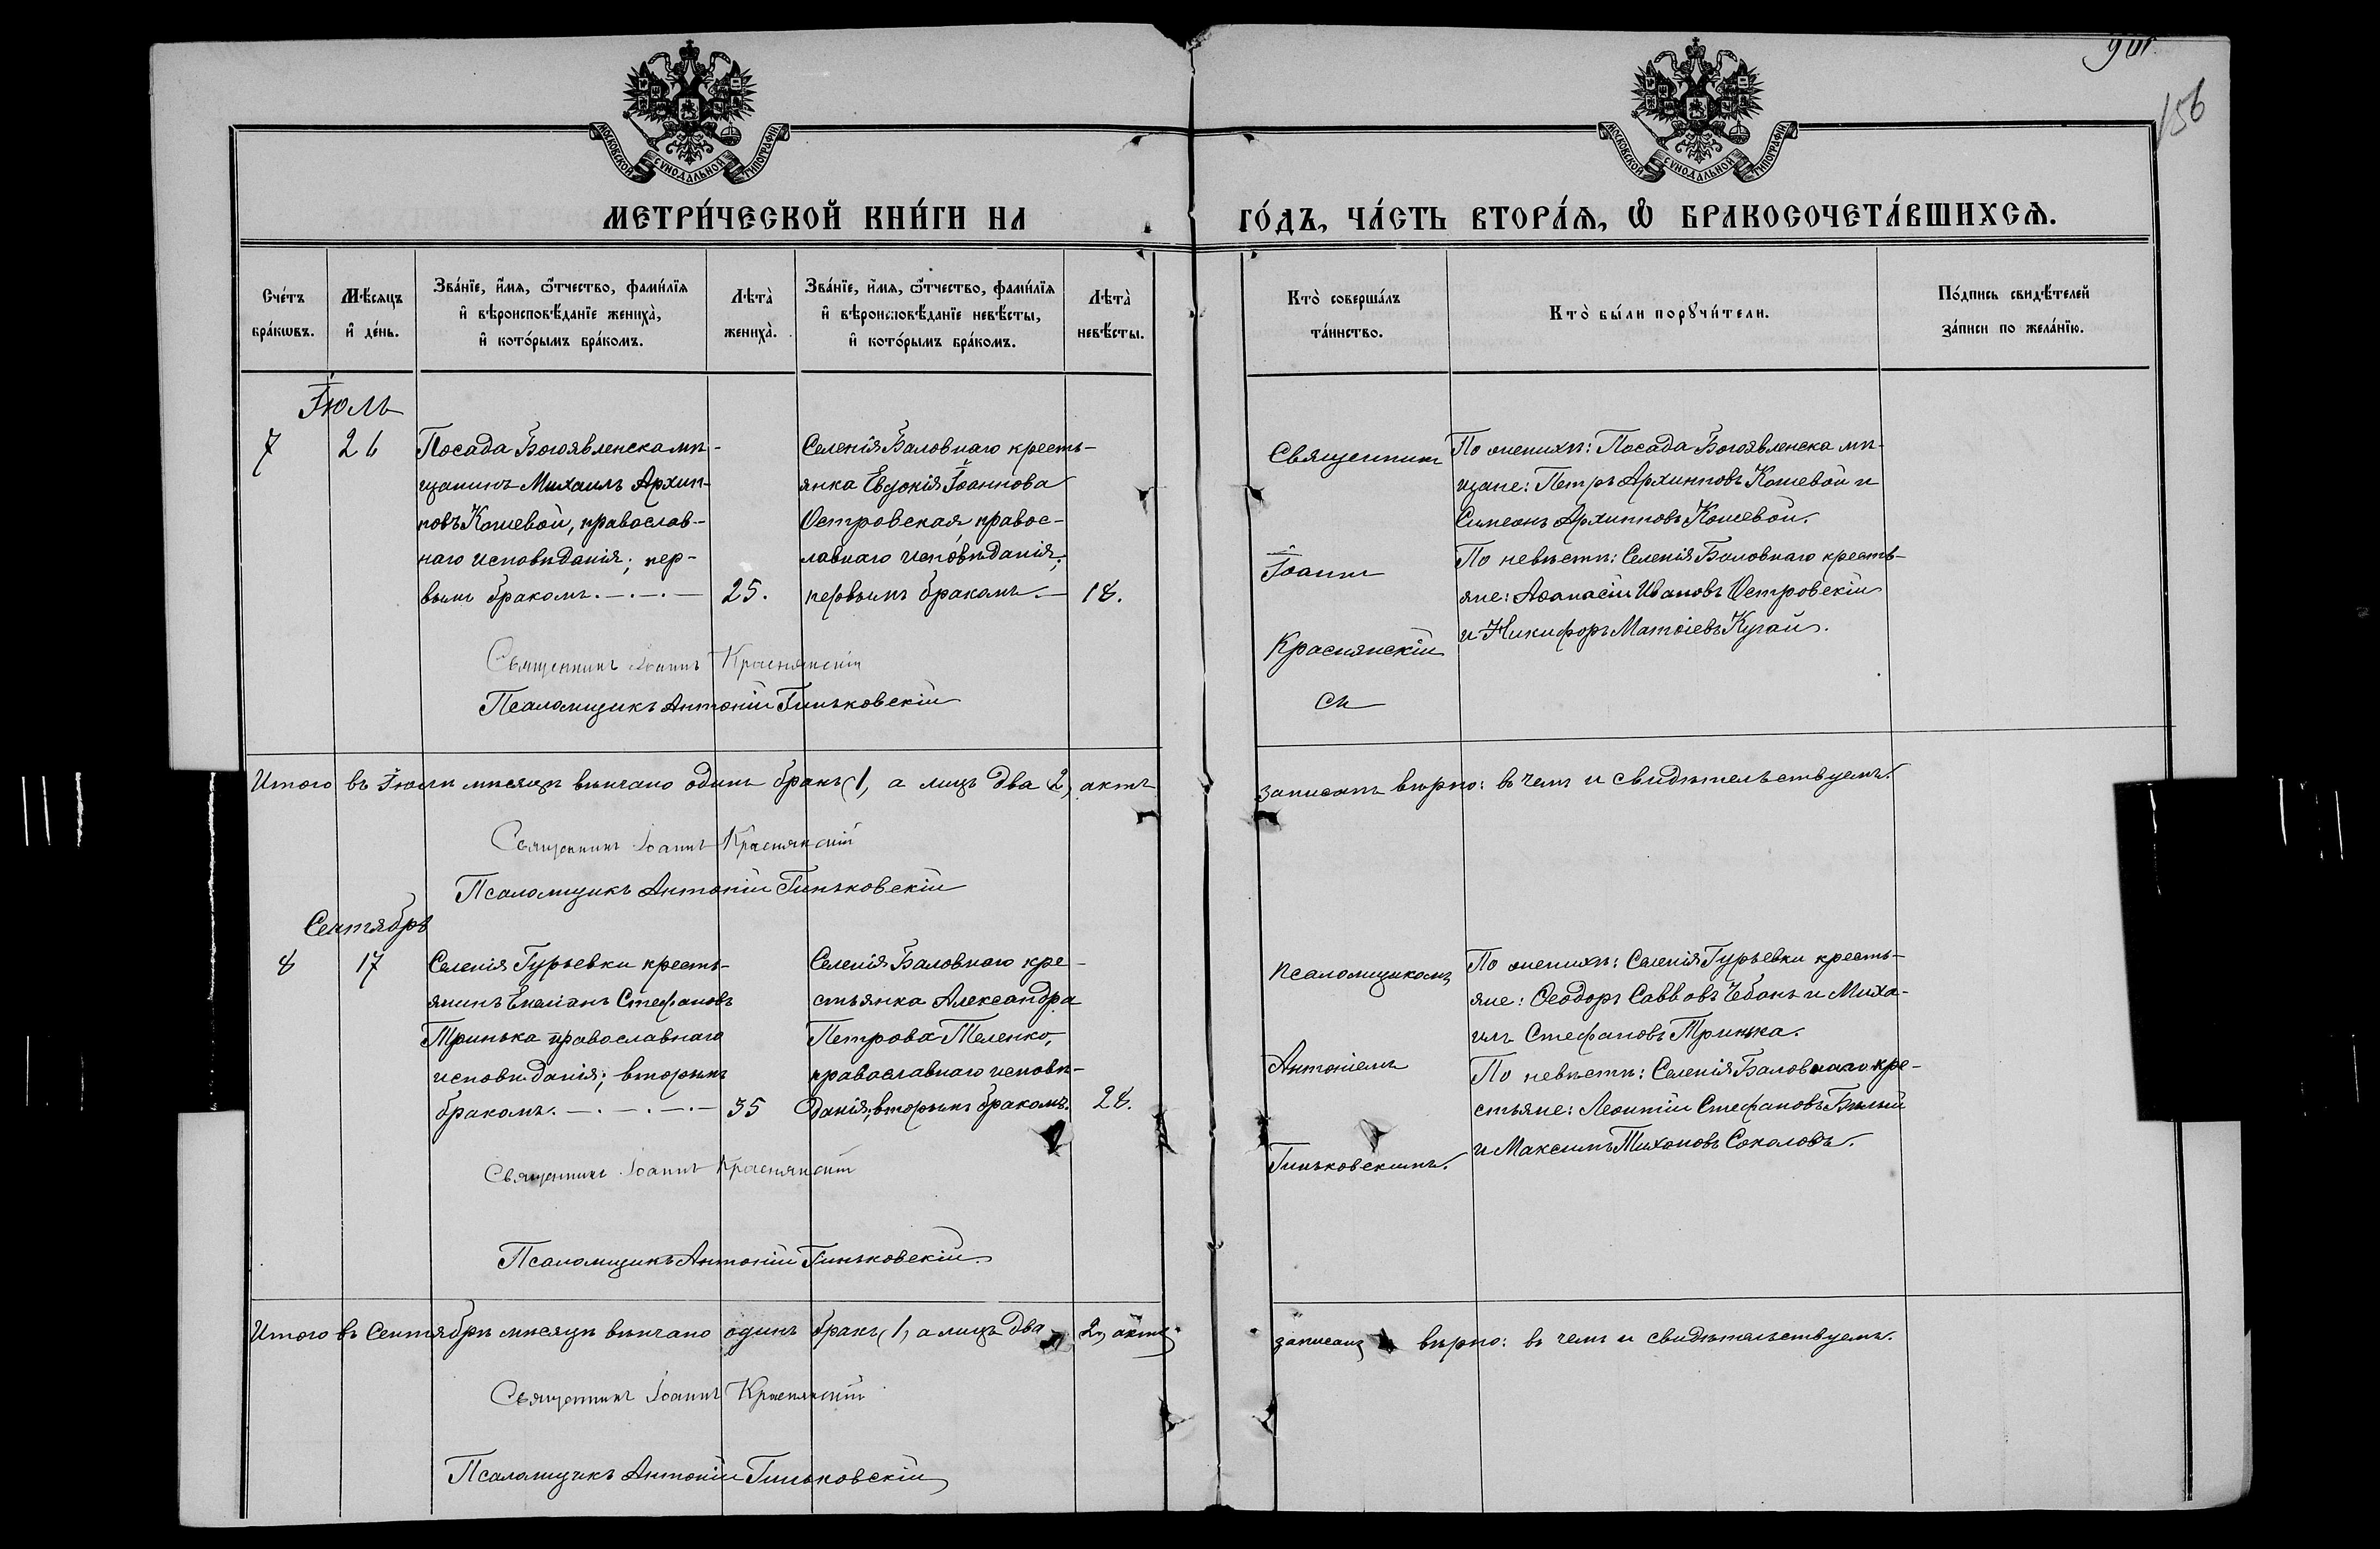 901
156
МОСКОВСКОЙ СУНОДАЛЬНОЙ ТИПОГРАФІИ
МОСКОВСКОЙ СУНОДАЛЬНОЙ ТИПОГРАФІИ
МЕТРИ́ЧЕСКОЙ КНИ́ГИ НА ГО́ДЪ, ЧА́СТЬ ВТОРА́Ѧ, Ѡ҆ БРАКОСОЧЕТА́ВШИХСѦ.
Сче́тъ бра́кѡвъ.
Мѣ́сѧцъ и҆ де́нь.
Зва́нїе, и҆́мѧ, ѻ҆́тчество, фами́лїѧ и҆ вѣроисповѣ́данїе жениха̀, и҆ кото́рымъ бра́комъ.
Лѣта̀ жениха̀.
Зва́нїе, и҆́мѧ, ѻ҆́тчество, фами́лїѧ и҆ вѣроисповѣ́данїе невѣ́сты, и҆ кото́рымъ бра́комъ.
Лѣта̀ невѣ́сты.
Кто̀ соверша́лъ та́инство.
Кто̀ бы́ли порꙋчи́тели.
По́дпись свидѣ́телей за́писи по жела́нїю.
Іюль
7
26
Посада Богоявленска мѣ-
щанинъ Михаилъ Архип-
повъ Кошевой, православ-
наго исповѣданія; пер-
вымъ бракомъ. —.—.—
25.
Селенія Баловнаго кресть-
янка Евдокія Іоаннова
Островская, правос-
лавнаго исповѣданія;
первымъ бракомъ. —
18.
Священник
Іоанн
Краснянскій
съ
По женихѣ: Посада Богоявленска мѣ-
щане: Петръ Архипповъ Кошевой и
Симеонъ Архипповъ Кошевой.
По невѣстѣ: Селенія Баловнаго кресть-
яне: Аѳанасій Ивановъ Островскій
и Никифоръ Матѳіевъ Кугай.
Священникъ Іоаннъ Краснянскій
Псаломщикъ Антоній Гиньковскій
Итого въ Іюлѣ мѣсяцѣ вѣнчано одинъ бракъ (1, а лицъ два (2) актъ записанъ вѣрно: въ чемъ и свидѣтельствуемъ.
Священникъ Іоаннъ Краснянскій
Псаломщикъ Антоній Гиньковскій
Сентябрь
8
17
Селенія Гурьевки кресть-
янинъ Емеліанъ Стефановъ
Тринька православнаго
исповѣданія; вторымъ
бракомъ. —.—.—.—
35
Селенія Баловнаго кре-
стьянка Александра
Петрова Теленко,
православнаго исповѣ-
данія; вторымъ бракомъ.
28.
псаломщикомъ
Антоніемъ
Гиньковскимъ.
По женихѣ: Селенія Гурьевки кресть-
яне: Ѳеодоръ Саввовъ Чебанъ и Миха-
илъ Стефановъ Тринька.
По невѣстѣ: Селенія Баловнаго кре-
стьяне: Леонтій Стефановъ Бѣлый
и Максимъ Тихоновъ Соколовъ.
Священникъ Іоаннъ Краснянскій
Псаломщикъ Антоній Гиньковскій.
Итого въ Сентябрѣ мѣсяцѣ вѣнчано одинъ бракъ (1, а лицъ два 2, актъ записанъ вѣрно: въ чемъ и свидѣтельствуемъ.
Священникъ Іоаннъ Краснянскій
Псаломщикъ Антоній Гиньковскій